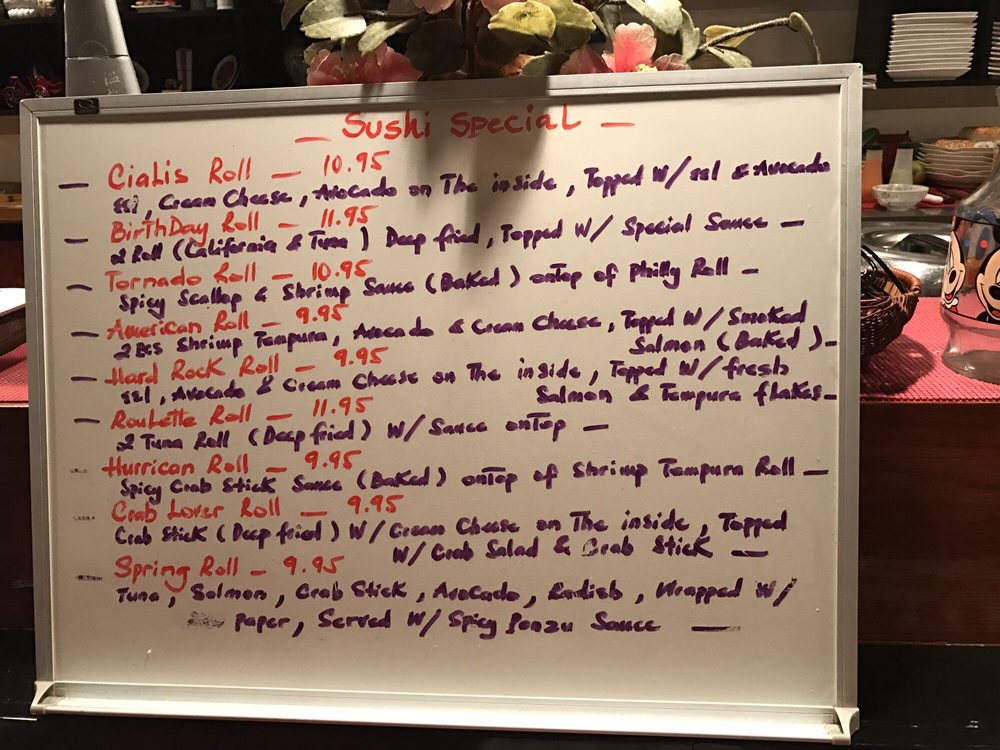 — Sushi Special —
— CiaLis Roll — 10.95
eel, Cream Cheese, Avocado on The inside, Topped W/ eel & Avocado
— BirThDay Roll — 11.95
2 Roll (California & Tuna) Deep fried, Topped W/ Special Sauce —
— Tornado Roll — 10.95
Spicy Scallop & Shrimp Sauce (Baked) onTop of Philly Roll —
— American Roll — 9.95
2 Pcs Shrimp Tempura, Avocado & Cream Cheese, Topped W/ Smoked
Salmon (Baked) —
— Hard Rock Roll — 9.95
eel, Avocado & Cream Cheese on The inside, Topped W/ fresh
Salmon & Tempura flakes —
— Roulette Roll — 11.95
2 Tuna Roll (Deep fried) W/ Sauce onTop —
— Hurrican Roll — 9.95
Spicy Crab Stick Sauce (Baked) onTop of Shrimp Tempura Roll —
— Crab Lover Roll — 9.95
Crab Stick (Deep fried) W/ Cream Cheese on The inside, Topped
W/ Crab Salad & Crab Stick —
— Spring Roll — 9.95
Tuna, Salmon, Crab Stick, Avocado, Radish, Wrapped W/
paper, Served W/ Spicy Ponzu Sauce —